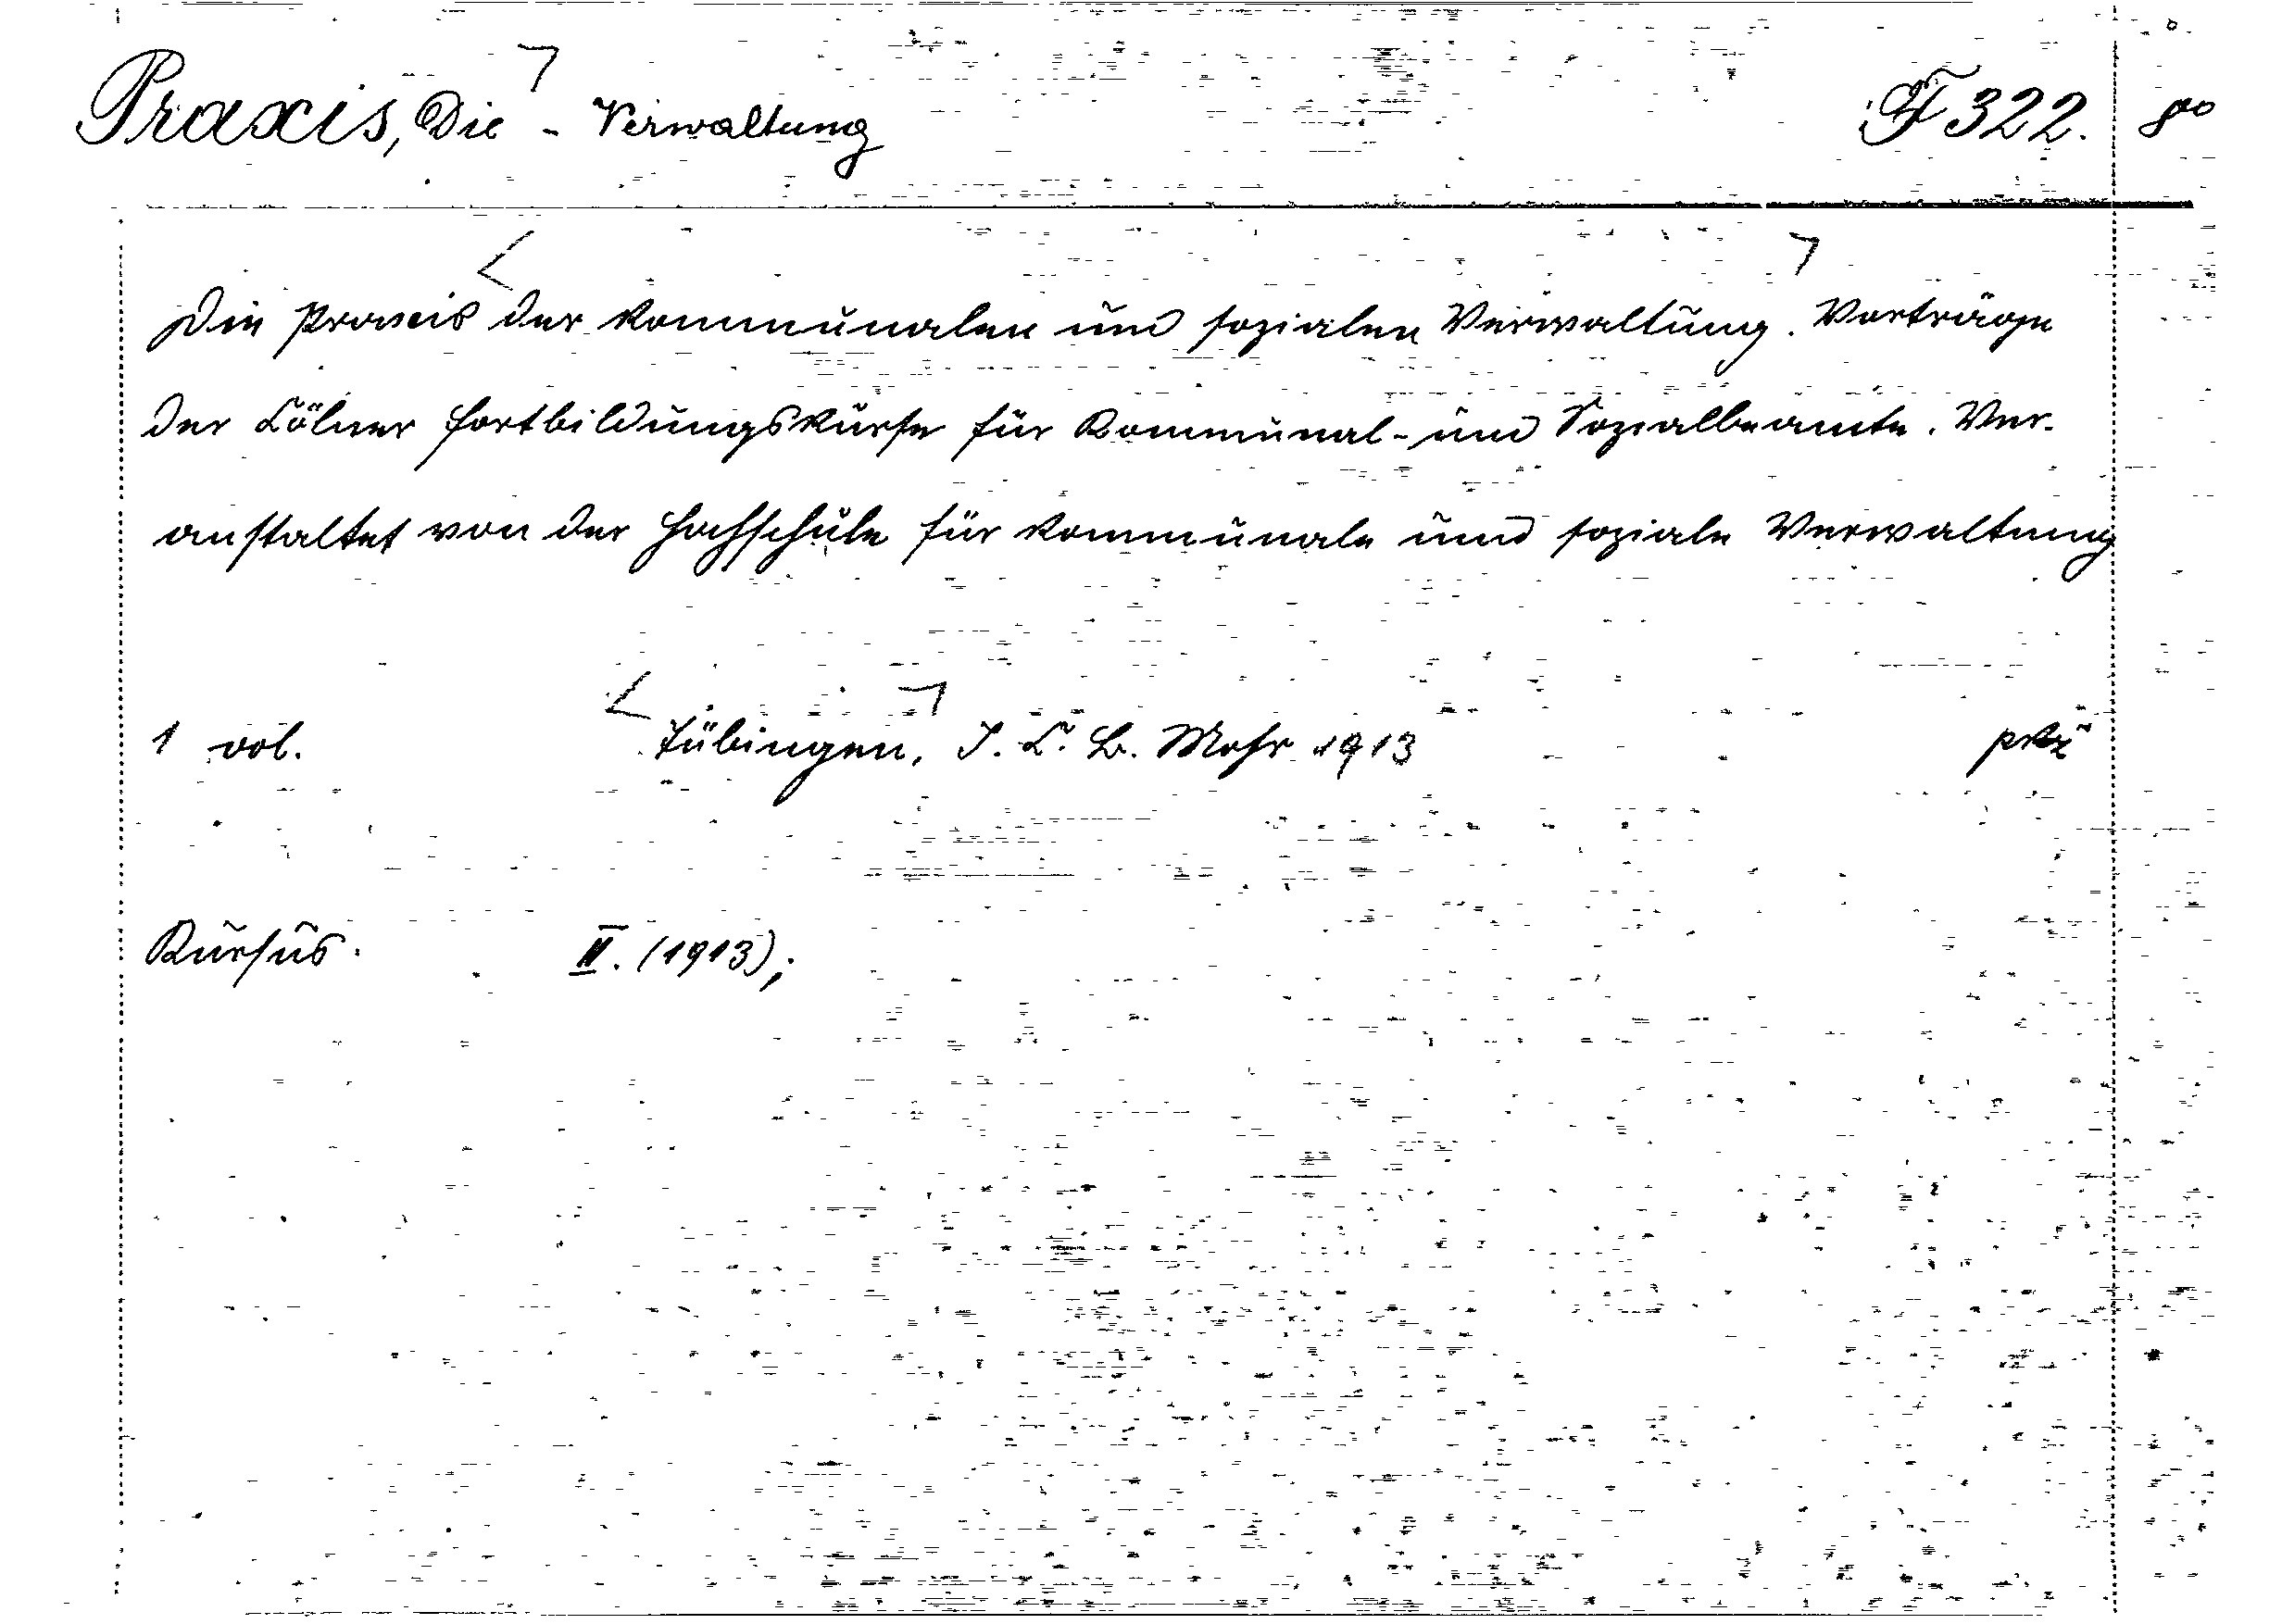 Praxis, Die - Verwaltung F 322. 8°
Die Praxis der kommunalen und sozialen Verwaltung. Vorträge
der Cölner Fortbildungskurse für Kommunal- und Sozialbeamte. Ver-
anstaltet von der Hochschule für kommunale und soziale Verwaltung
1 vol. Tübingen, J. C. B. Mohr 1913
Kursus. II. (1913);